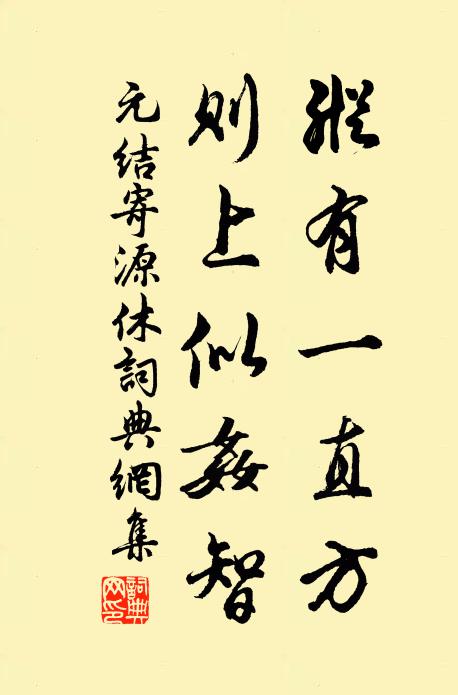 縱有一直方
則上似姦智
元结寄源休詞典網集
詞典网印